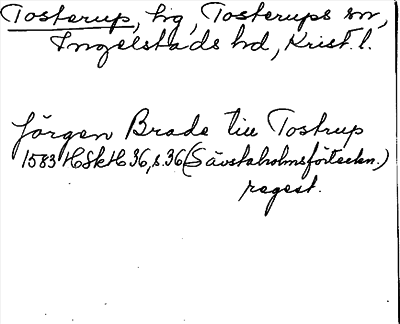 Tosterup, hg, Tosterups sn,
Ingelstads hd, Krist. l.
Jörgen Brade till Tostrup
1583 HSkH 36, s. 36 (Sävstaholmsförteckn.)
regest.